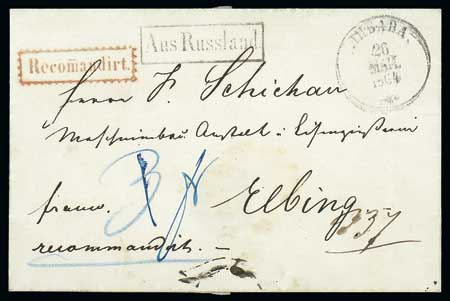 Recom̅andirt.
Aus Russland
LIBAVA.
26
MAR.
1864
Herrn F. Schichau
Maschinenbau Anstalt u Eisengießerei
Elbing
franco.
recommandirt. –
337